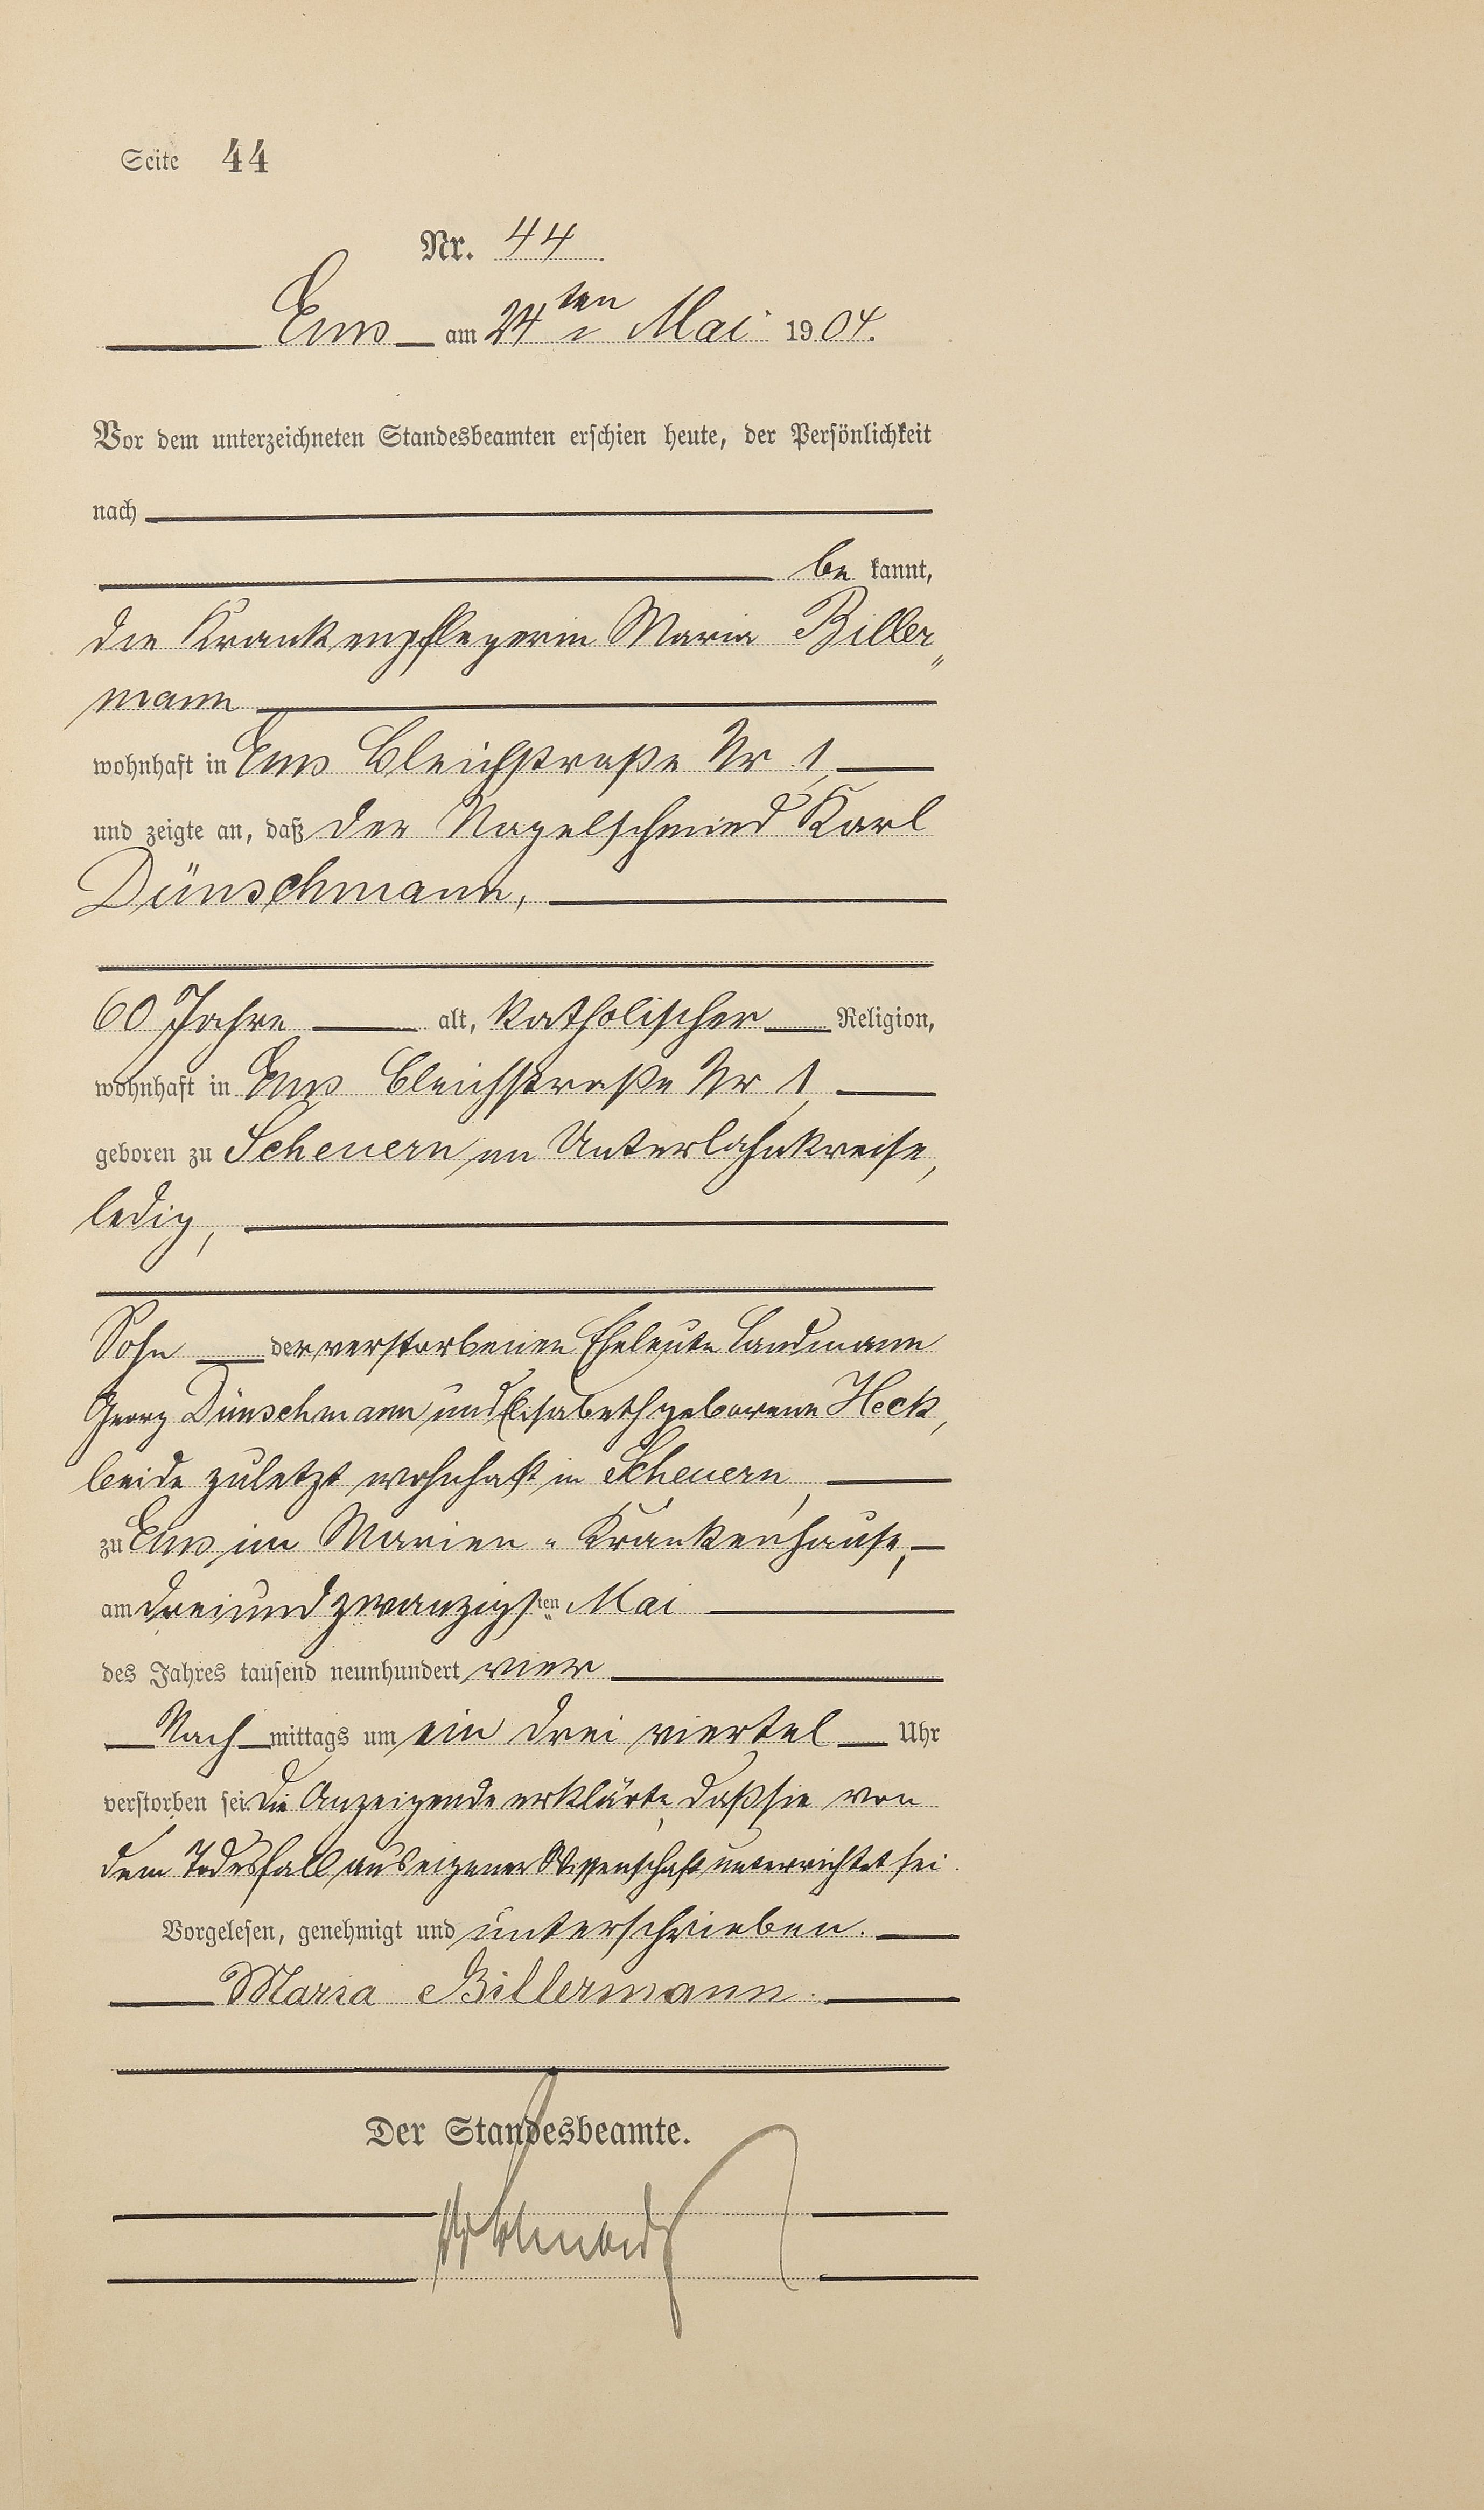 Seite 44
Nr. 44.
Ems am 24ten Mai 1904.
Vor dem unterzeichneten Standesbeamten erschien heute, der Persönlichkeit
nach
be kannt,
die Krankenpflegerin Maria Biller„
mann
wohnhaft in Ems Bleichstraße Nr 1,
und zeigte an, daß der Nagelschmied Karl
Dünschmann,
60 Jahre alt, katholischer Religion,
wohnhaft in Ems Bleichstraße Nr 1,
geboren zu Scheuern im Unterlahnkreise,
ledig,
Sohn der verstorbenen Eheleute Landmann
Georg Dünschmann und Elisabeth geborene Heck,
beide zuletzt wohnhaft in Scheuern,
zu Ems im Marien-Krankenhause,
am dreiundzwanzigsten Mai
des Jahres tausend neunhundert vier
Nach mittags um ein drei viertel Uhr
verstorben sei. Die Anzeigende erklärte, daß sie von
dem Todesfall aus eigener Wissenschaft unterrichtet sei.
Vorgelesen, genehmigt und unterschrieben.
Maria Billermann.
Der Standesbeamte.